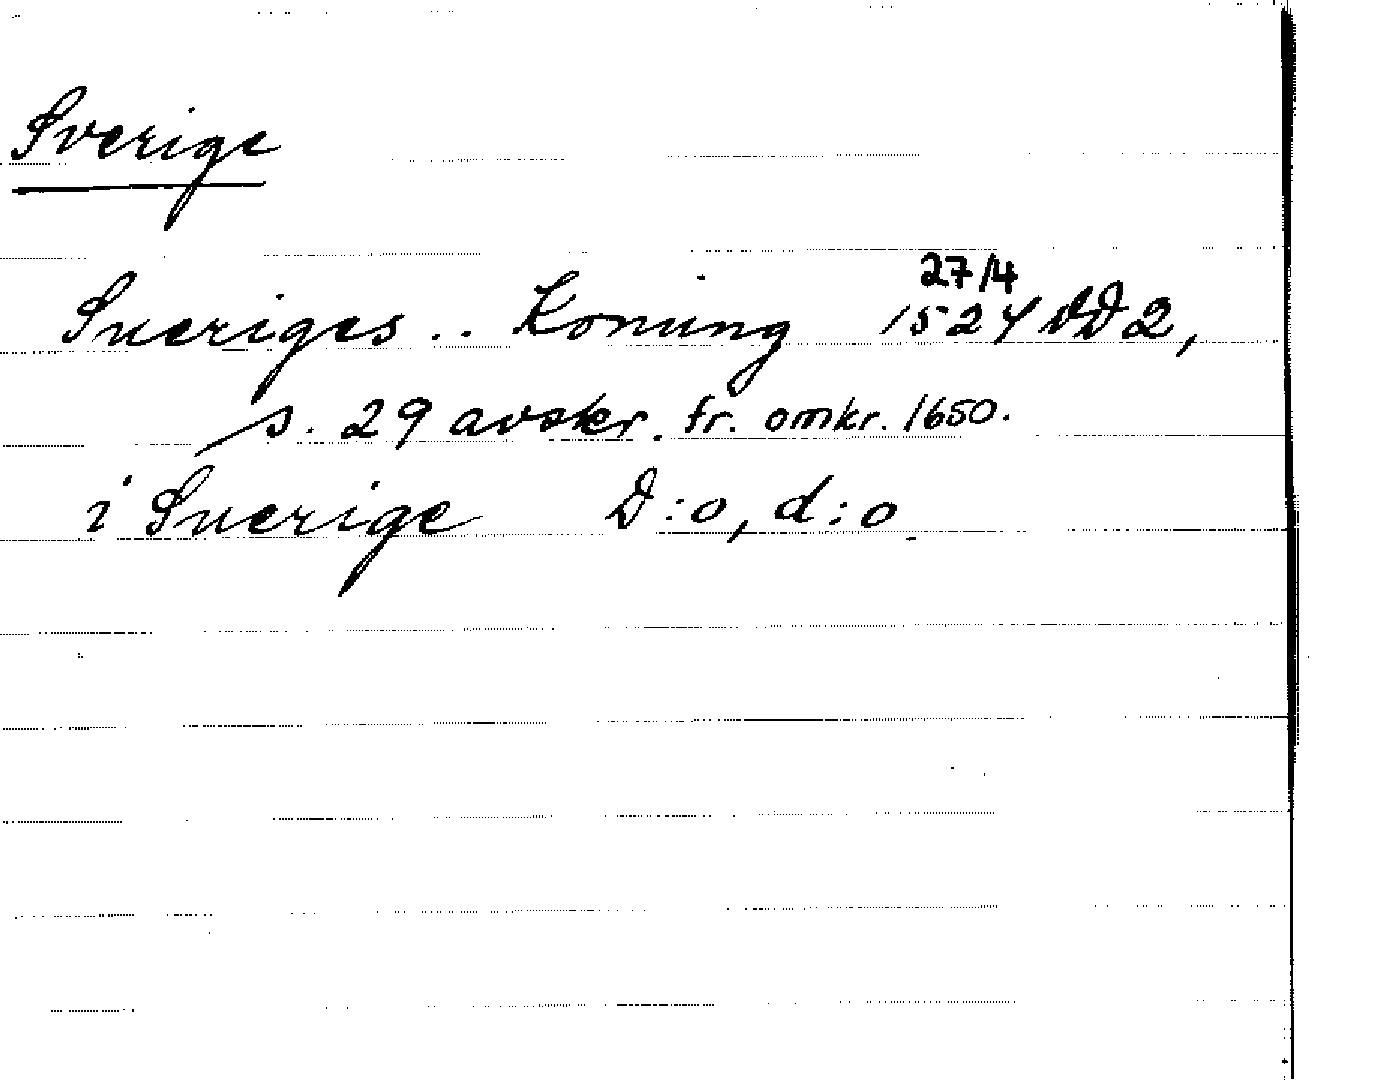 Sverige
27/4
Sueriges .. Konung 1524 DD2,
s. 29 avskr. fr. omkr. 1650.
i Suerige D:o, d:o